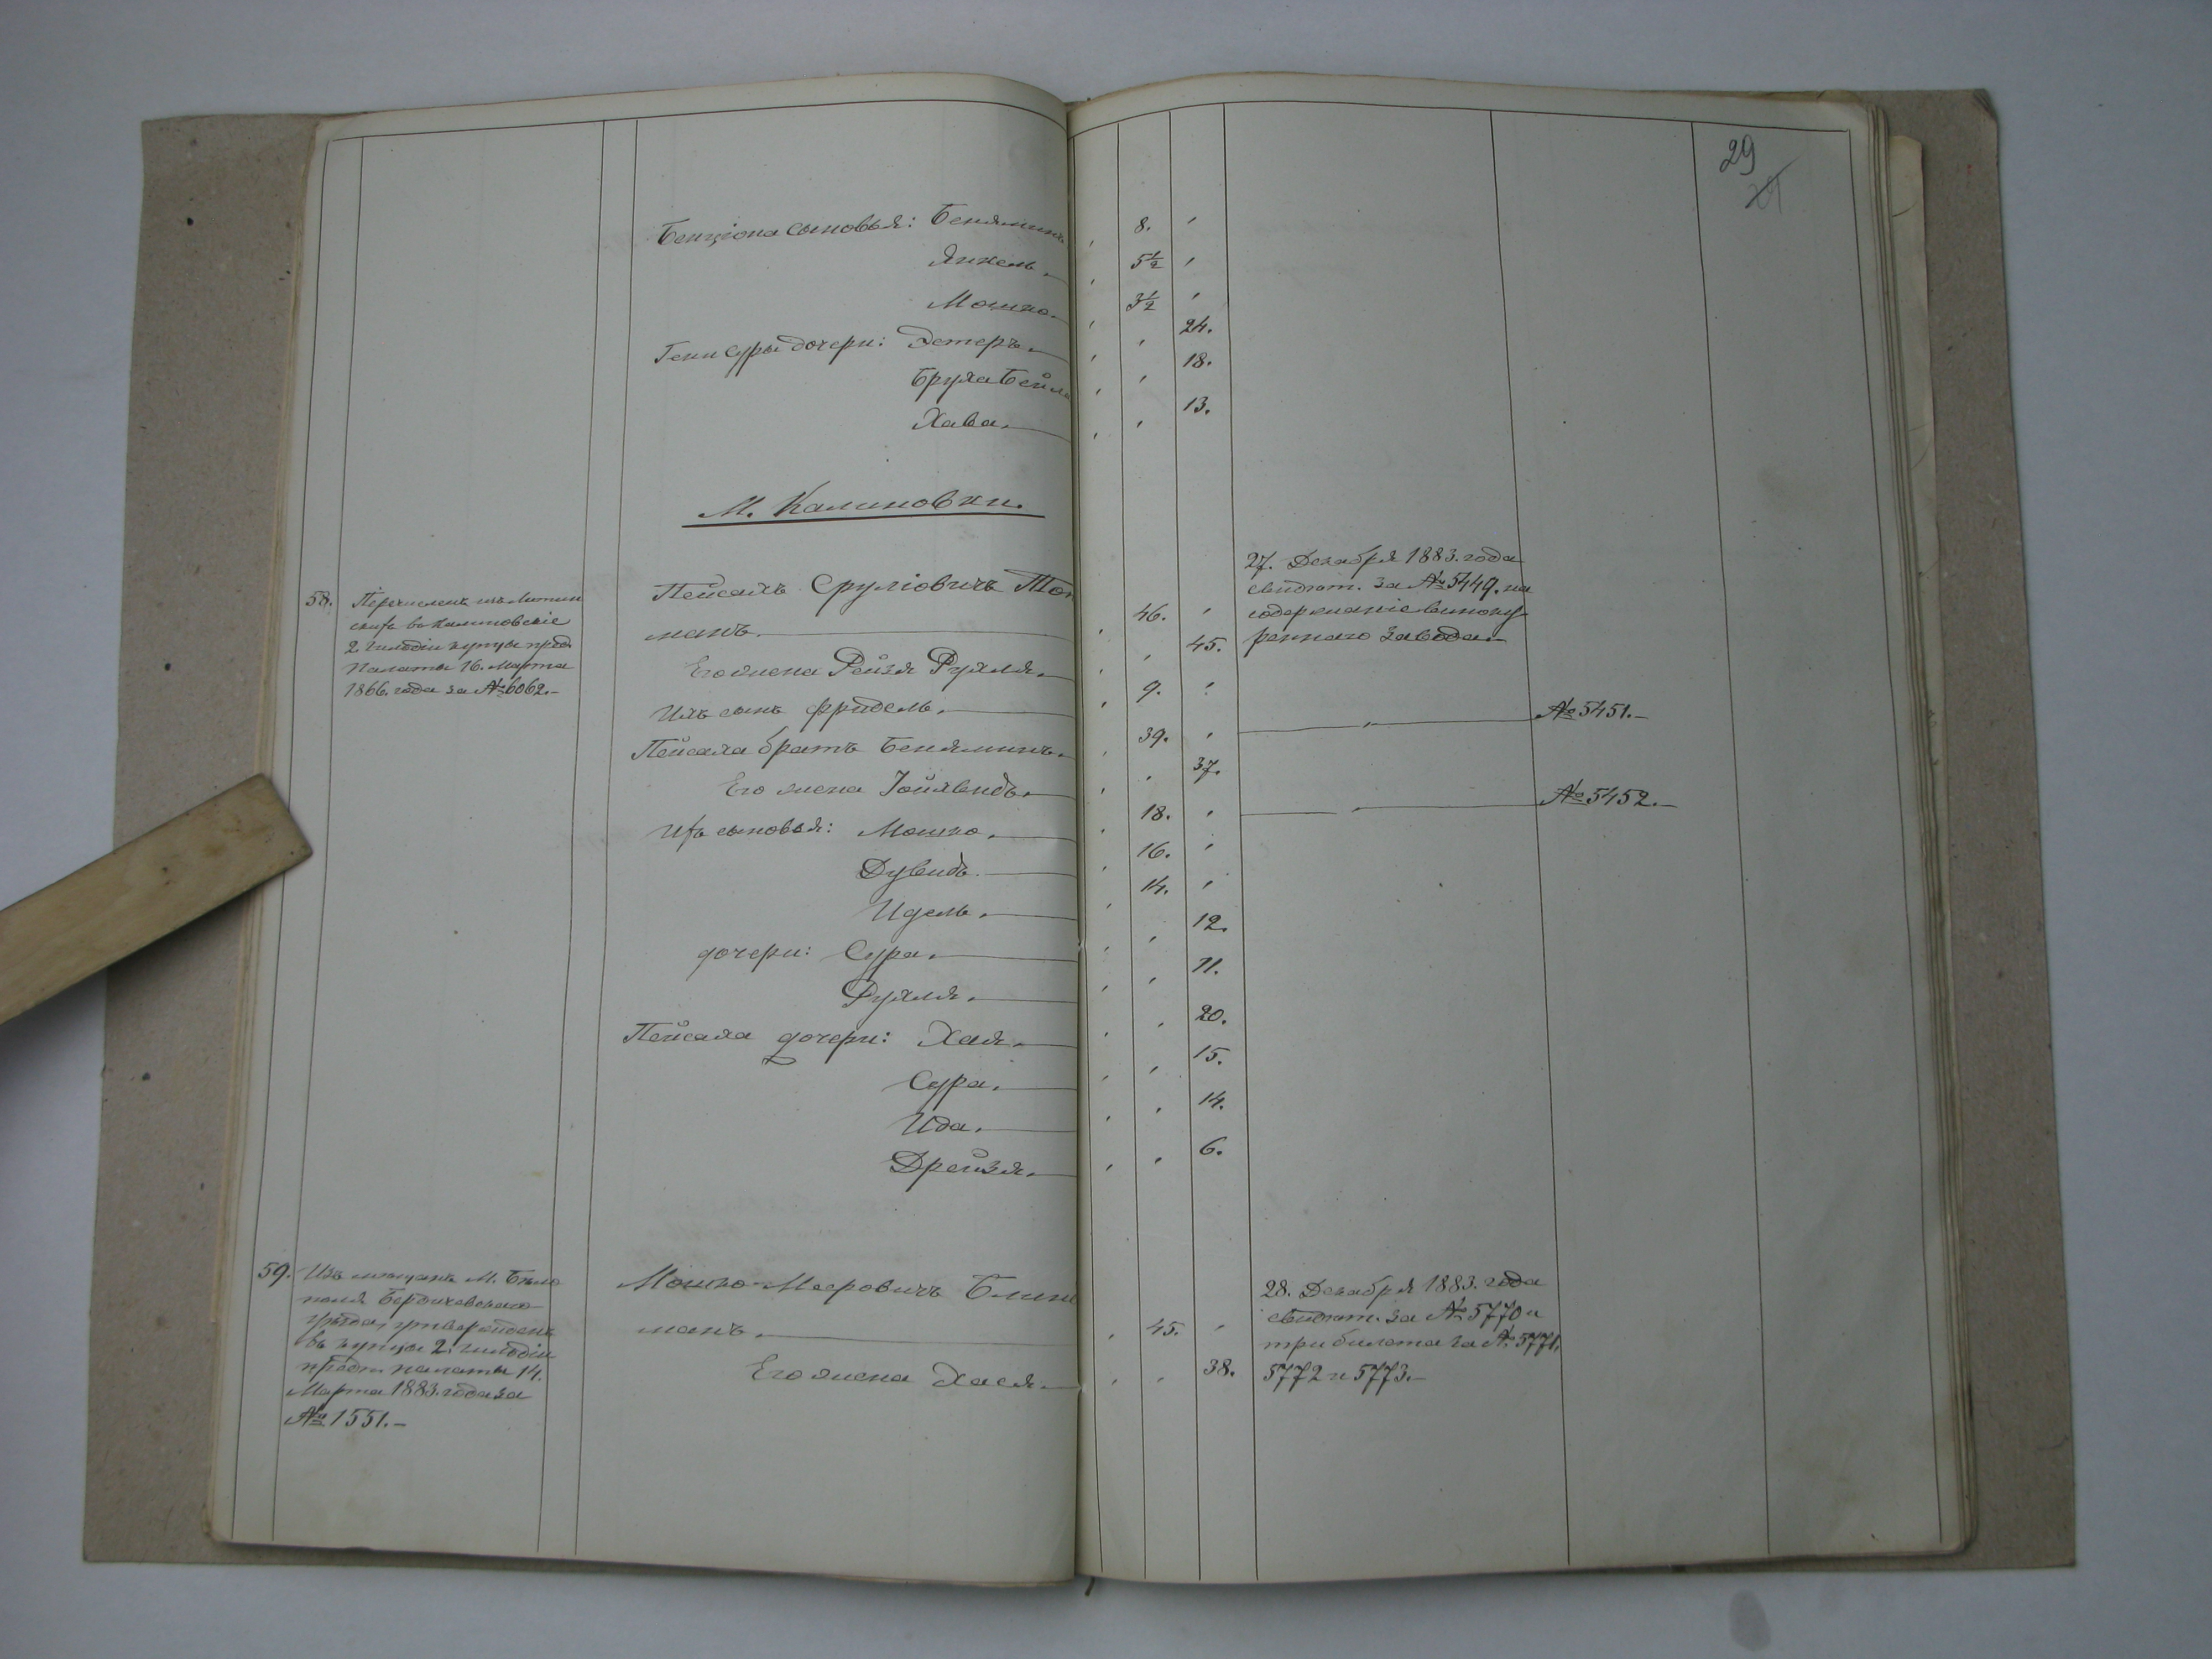 29
Бенціона сыновья: Бенямин 8.
Янкель. 5½
Мошко. 3½
Гени Суры дочери: Эстеръ. 24.
Бруха Бейла 18.
Хава. 13.
М. Калиновки.
58. Перечисленъ изъ Литин
скихъ въ Калиновскіе
2. гильдіи купцы пред.
Палаты 16. Марта
1866. года за № 6062.-
Пейсахъ Сруліовичъ Тол
манъ. 46.
Его жена Рейзя Рухля. 45.
Ихъ сынъ Фридель. 9.
Пейсаха братъ Беняминъ. 39.
Его жена Іойхведъ. 37.
Ихъ сыновья: Мошко. 18.
Дувидъ. 16.
Идель. 14.
дочери: Сура. 12.
Рухля. 11.
Пейсаха дочери: Хая. 20.
Сура. 15.
Ида. 14.
Дрейзя. 6.
27. Декабря 1883. года
свидѣт. за № 5449. на
содержаніе виноку-
реннаго завода.
№ 5451.-
№ 5452.-
59. Изъ мѣщанъ М. Бѣло
полья Бердичевскаго
уѣзда, утвержденъ
въ купцы 2. гильдіи
предп. палаты 14.
Марта 1883. года за
№ 1551.-
Мошко Мееровичъ
манъ. 45.
Его жена Хася. 38.
28. Декабря 1883. года
свидѣт. за № 5770 и
три билета за № 5771,
5772 и 5773.-